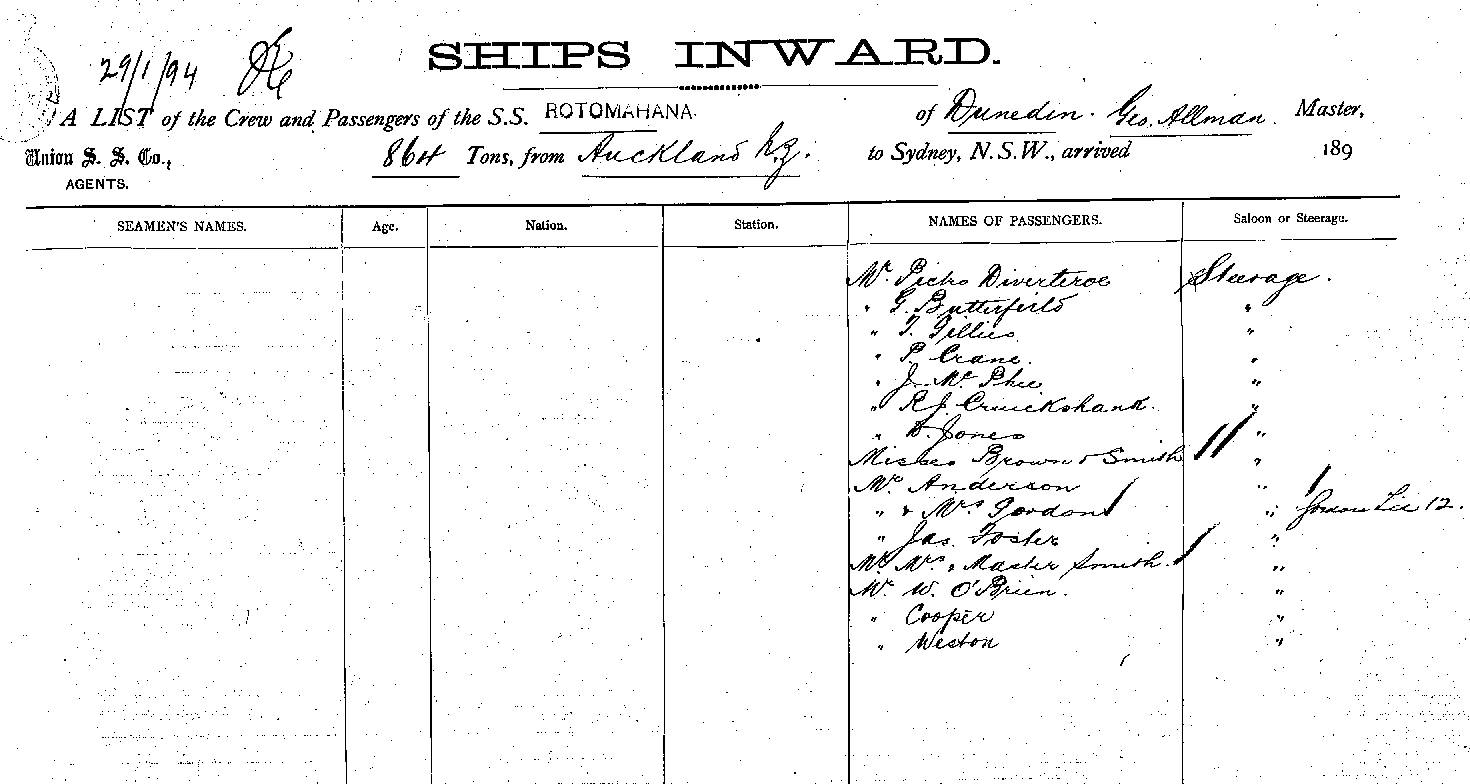 SHIPS INWARD.
29/1/94
A LIST of the Crew and Passengers of the S.S. ROTOMAHANA. of Dunedin. Geo. Allman. Master,
Union S. S. Co., 864 Tons, from Auckland N.Z. to Sydney, N.S.W., arrived 189
AGENTS.
SEAMEN'S NAMES. Age. Nation. Station. NAMES OF PASSENGERS. Saloon or Steerage.
Mr Steerage.
" G. Butterfield "
" T. Gillies "
" P. Crane. "
" J. McPhee "
" R.J. Cruickshank. "
" D. Jones "
Misses Brown & Smith "
Mr Anderson "
" & Mrs Gordon " 12.
" Jas. Foster "
Mr Mrs & Master Smith. "
Mr W. O'Brien. "
" Cooper "
" Weston "